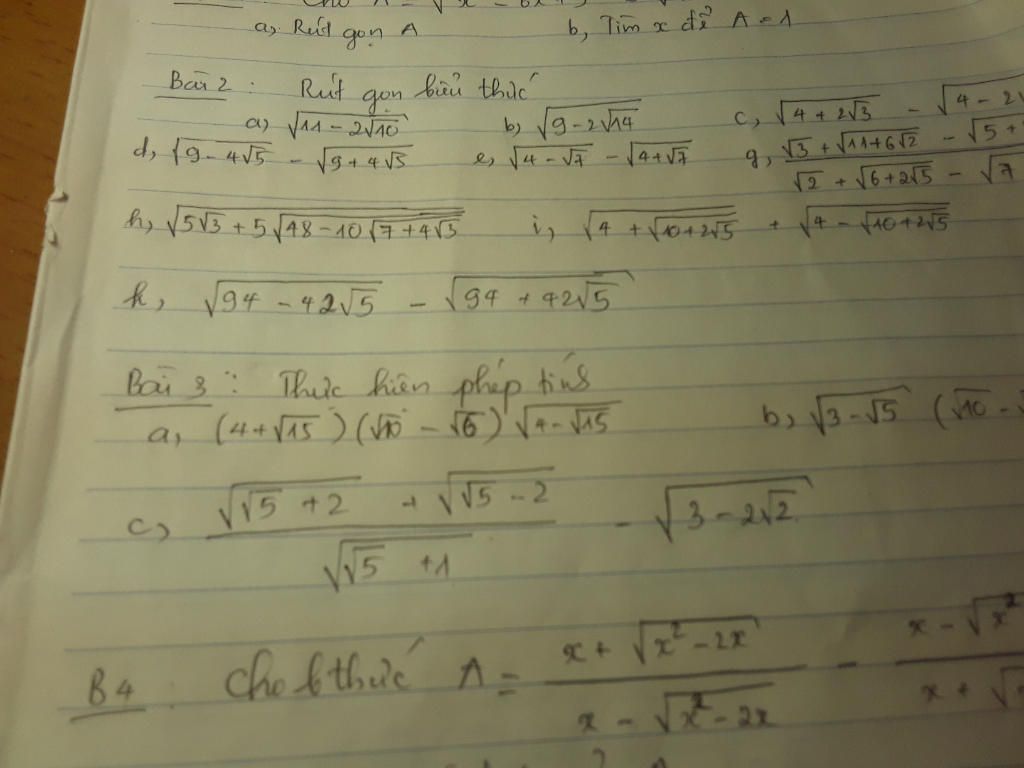 Cho A = √x - 6x +
a, Rút gọn A b, Tìm x để A = 1
Bài 2 : Rút gọn biểu thức
a, √(11 - 2√10) b, √(9 - 2√14) c, √(4 + 2√3) - √(4 - 2√
d, √(9 - 4√5) - √(9 + 4√5) e, √(4 - √7) - √(4 + √7) g, (√3 + √(11 + 6√2) - √(5 +
√2 + √(6 + 2√5) - √7
h, √(5√3 + 5√(48 - 10√(7 + 4√3))) i, √(4 + √(10 + 2√5)) + √(4 - √(10 + 2√5))
k, √(94 - 42√5) - √(94 + 42√5)
Bài 3 : Thực hiện phép tính
a, (4 + √15)(√10 - √6)√(4 - √15) b, √(3 - √5) (√10 - √
c, (√(√5 + 2) + √(√5 - 2)) / √(√5 + 1) - √(3 - 2√2)
B4 : Cho b thức A = (x + √(x² - 2x)) / (x - √(x² - 2x)) - (x - √x²) / (x + √